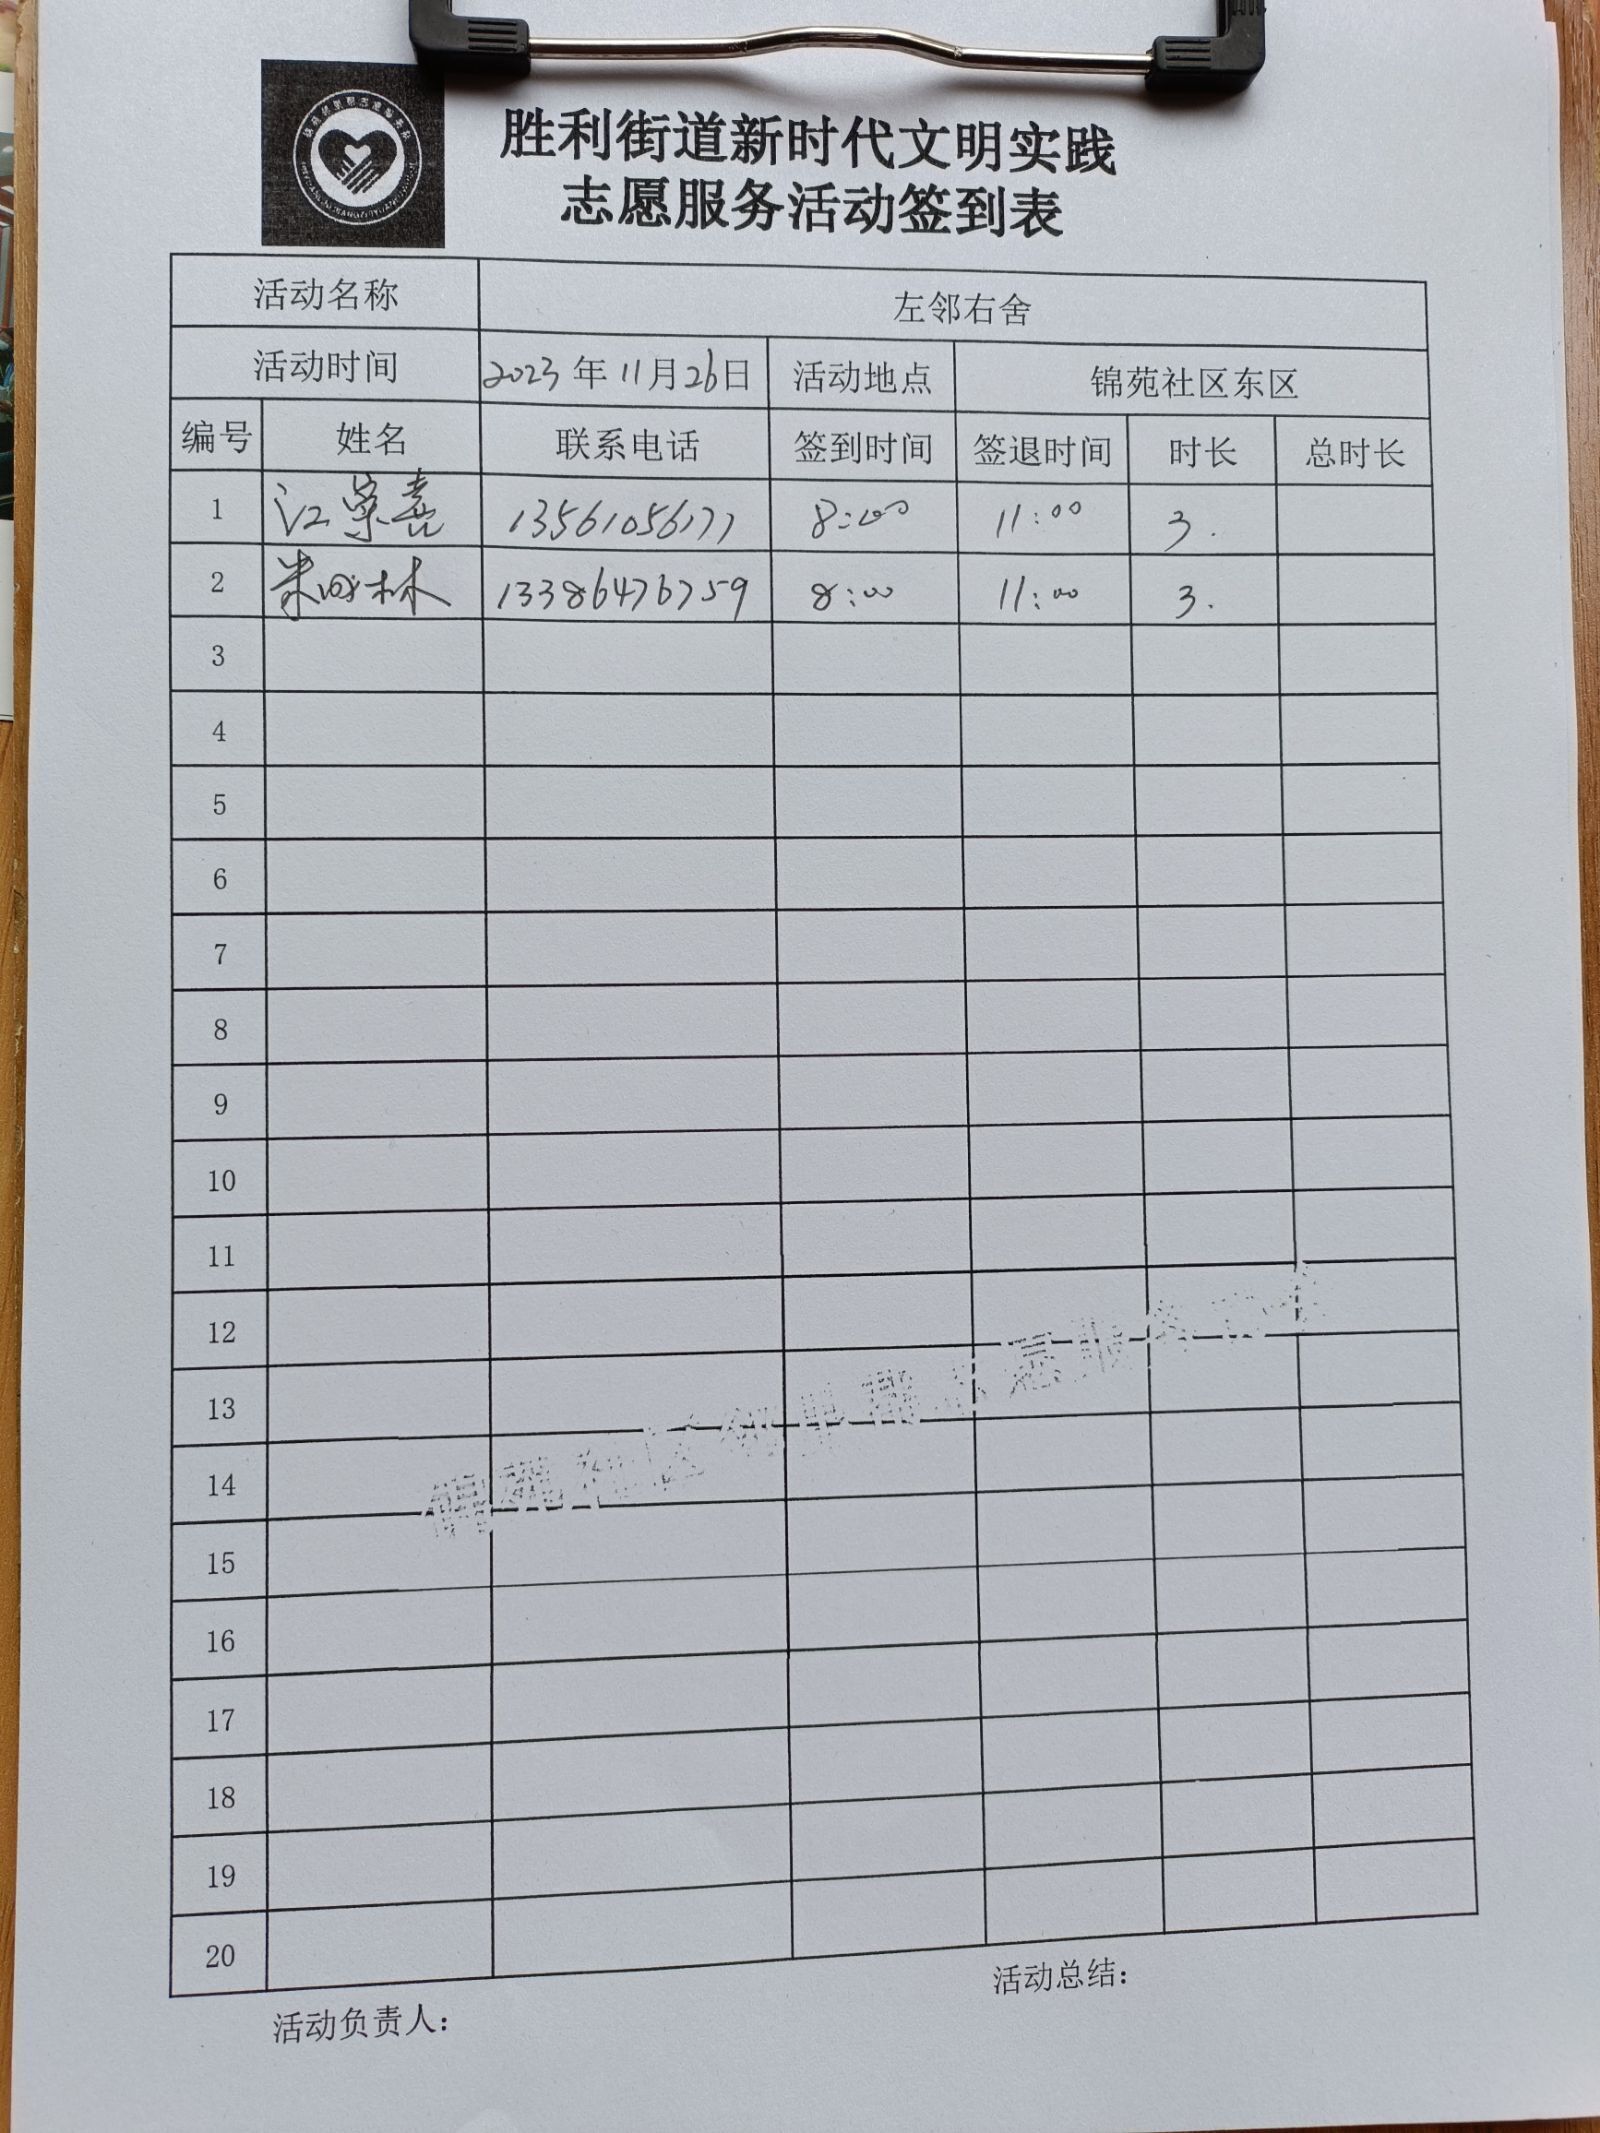 胜利街道新时代文明实践
志愿服务活动签到表
活动名称 左邻右舍
活动时间 2023年11月26日 活动地点 锦苑社区东区
编号 姓名 联系电话 签到时间 签退时间 时长 总时长
1 江荣喜 13561056177 8:00 11:00 3.
2 林 13386476759 8:00 11:00 3.
3
4
5
6
7
8
9
10
11
12
13
14
15
16
17
18
19
20
锦苑社区邻里帮志愿服务
活动总结：
活动负责人：